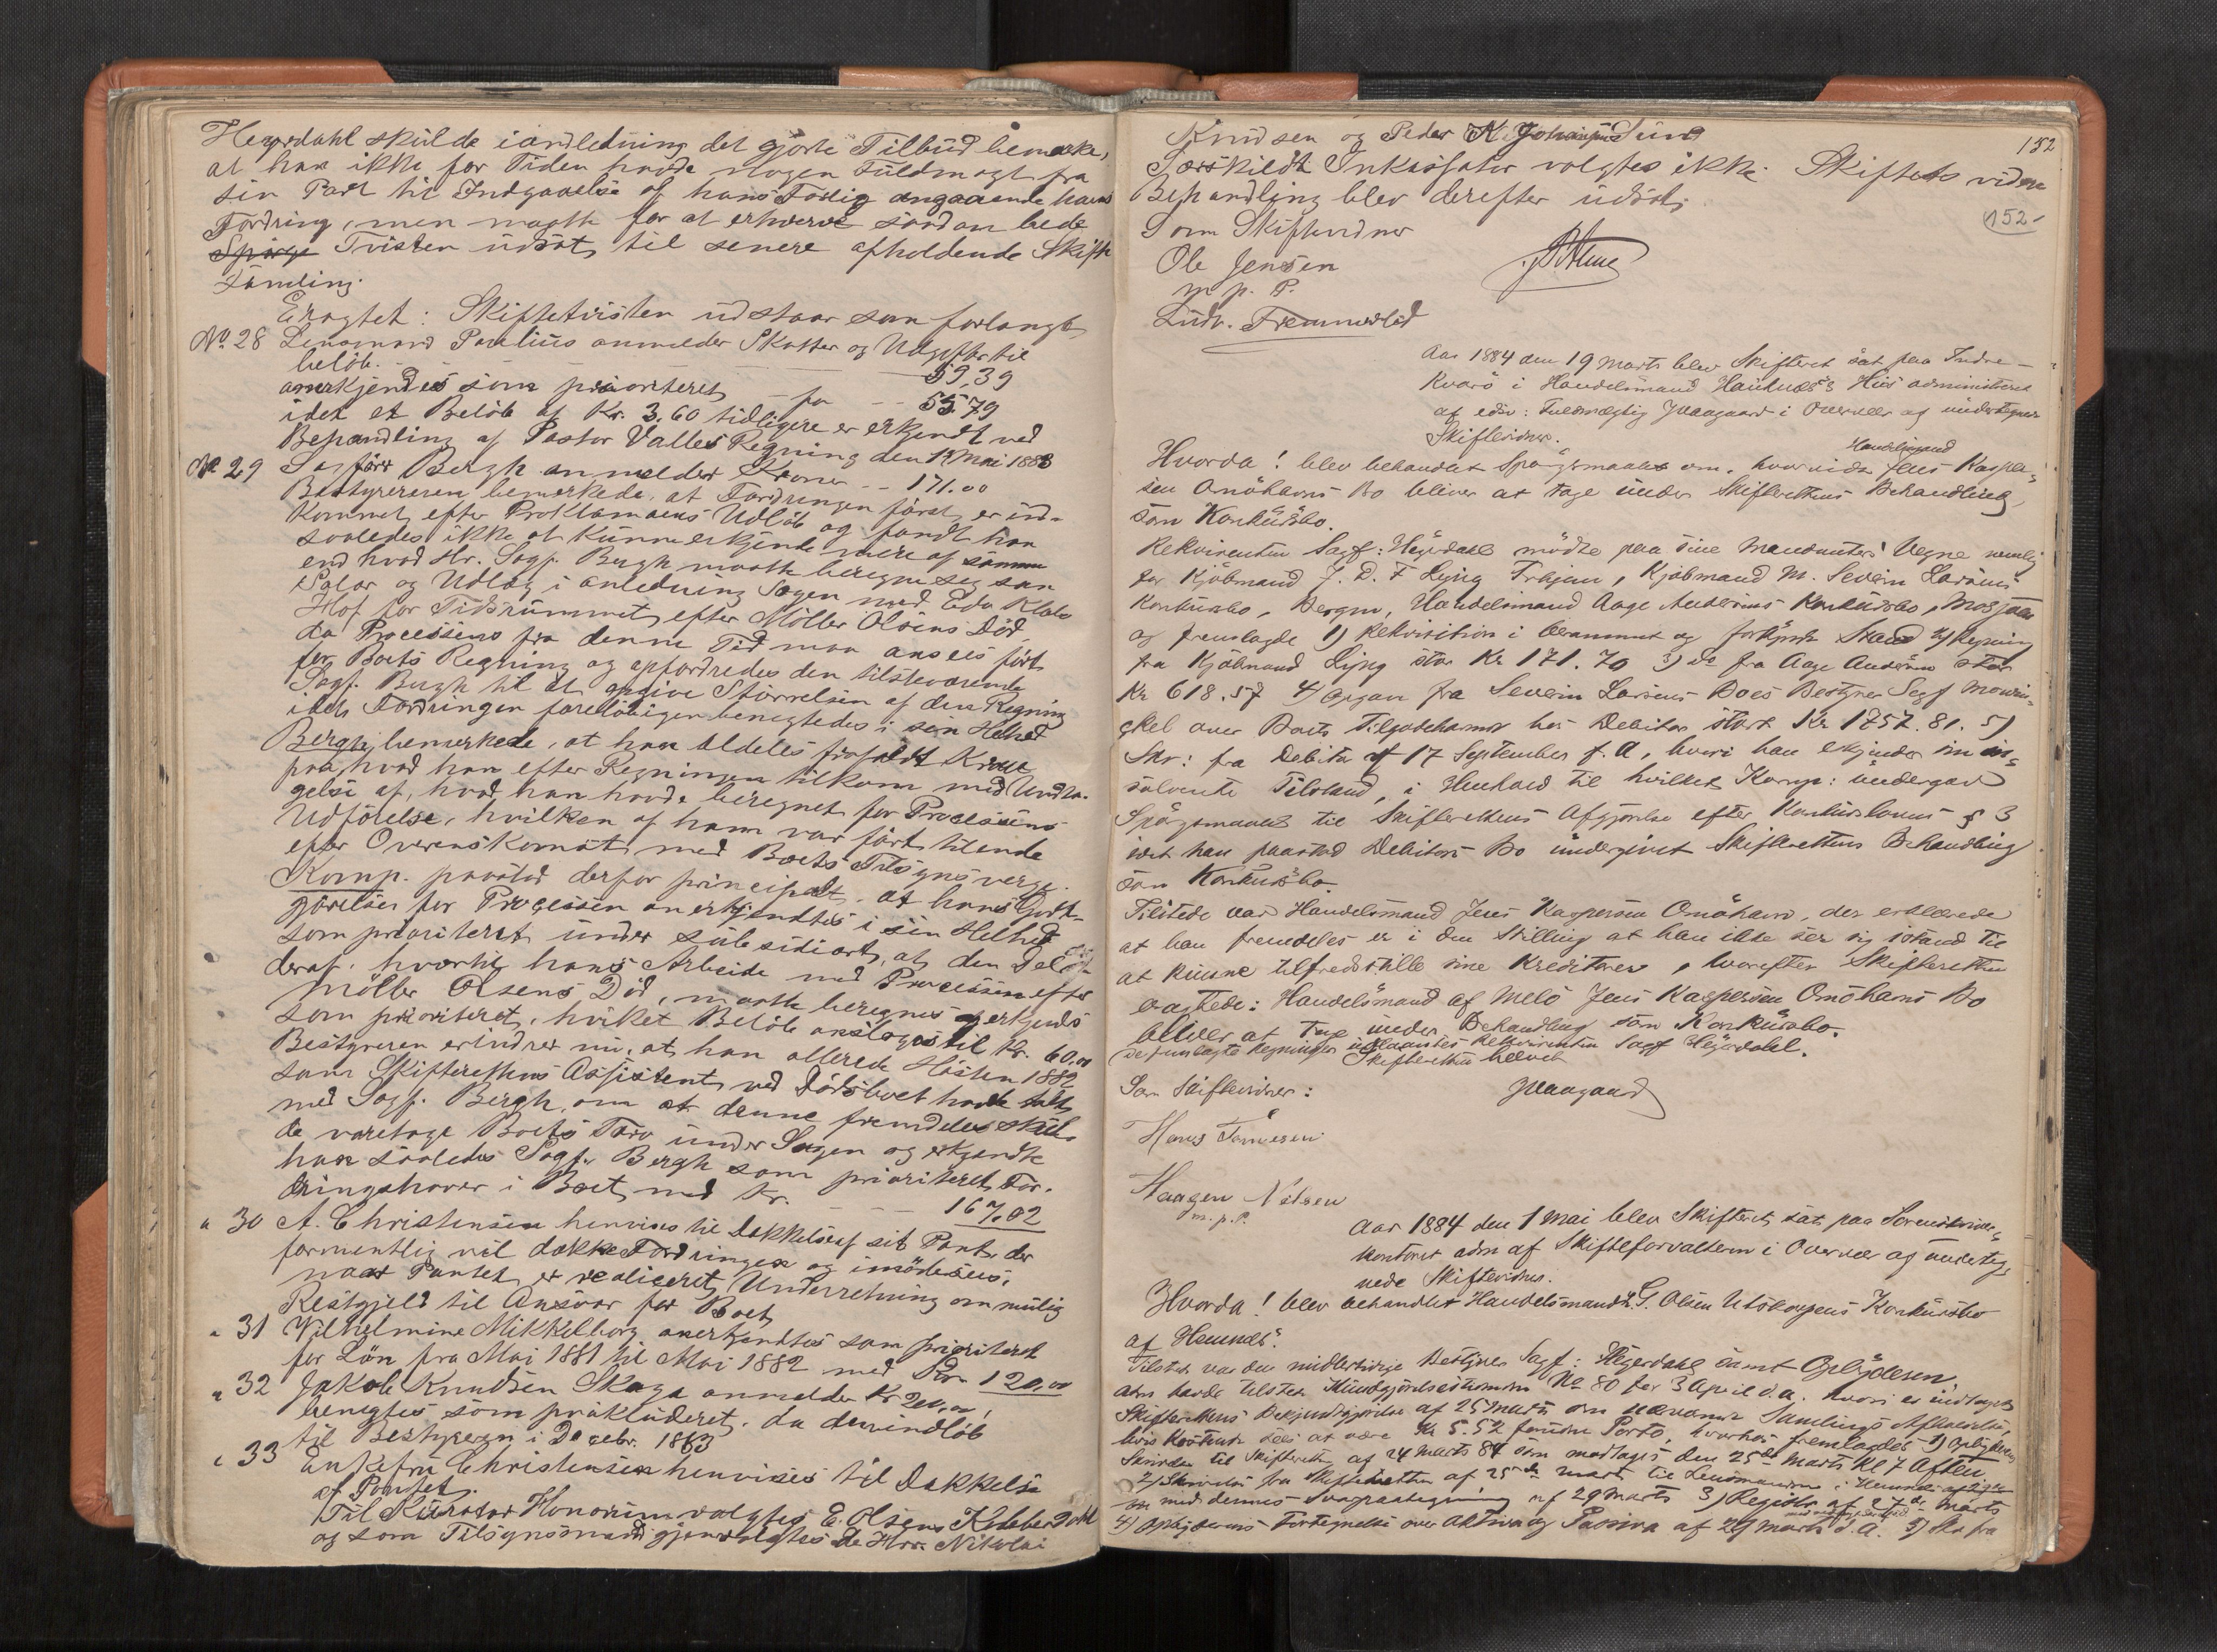 Hegerdahl skulde i anledning det gjorte Tilbud bemærke,
at han ikke for Tiden havde nogen Fuldmagt fra
sin Part til Indgaaelse af hans Forlig angaaende hans
Fordring, men maatte for at erhverve saadan bede
Tvisten udsat til senere afholdende Skifte
samling.
Eragtet: Skiftetvisten udstaar som forlangt
No. 28 Lensmand Paulius anmelder Skatter og Udgifter til
beløb. 59,39
anerkjendes som prioriteret for 55,79
idet et Beløb af Kr. 3,60 tidligere er erkjendt ved
Behandling af Pastor Valles Regning den 12 Mai 1883
No 29 Sagfører Bergh anmelder Kroner 171.00
Bestyreren bemærkede, at Fordringen først er ind-
kommet efter Proklamaens Udløb og fandt han
saaledes ikke at kunne erkjende mere af samme
end hvad Hr. Sagf. Bergh maatte beregne sig som
Salær og Udlæg i anledning Sagen med
for Tidsrummet efter Møller Olsens Død
da Processens fra denne Tid maa ansees ført
for Boets Regning og opfordredes den tilstedeværende
Sagf. Bergh til at opgive Størrelsen af den Regning
idet Fordringen foreløbigen benegtedes i sin Helhed
Bergh, bemerkede, at han aldeles frafaldt Krav
paa, hvad han efter Regningen tilkom med Undta-
gelse af, hvad han havde beregnet for Processens
Udførelse, hvilken af ham var ført tilende
efter Overenskomst med Boets Tilsynsverge.
Komp. paastod derfor principalt, at hans Godt-
gjørelse for Processen anerkjendtes i sin Helhed
som prioriteret under subsidiært, at den Del
deraf. hvortil hans Arbeide med Processen efter
Møller Olsens Død, maatte beregnes og erkjends
som prioriteret, hvilket Beløb ansloges til Kr. 60,00
Bestyreren erindrer nu, at han allerede Høsten 1882
som Skifterettens Assistent ved Dødsboet havde talt
med Sagf. Bergh, om at denne fremdeles skul-
de varetage Boets Tarv under Sagen og erkjendte
han saaledes Sagf. Bergh som prioriteret For-
dringshaver i Boet med Kr. 167,02
" 30 A. Christensen henvises til Dækkelse af sit Pant der
formentlig vil dække Fordringen og imødesees,
naar Pantet er realiseret, Underretning om mulig
Restgjeld til Ansvar for Boet
" 31 Wilhelmine Mikkelborg anerkjendtes som prioriteret
for Løn fra Mai 1881 til Mai 1882 med Kr. 120,00
" 32 Jakob Knudsen Skaga anmelder Kr 200,00,
benegtes som prækluderet, da den indløb
til Bestyreren i Decebr. 1883
" 33 Enkefru Christensen henvises til Dækkelse
af Pantet.
Til Kurator Honorum valgtes E. Olsens
og som Tilsynsmænd gjenvalgtes de Hrr. Nikolai
152
Knudsen og Peder K. Johansens Sund
Særskildt Inkassator valgtes ikke. Skiftets videre
Behandling blev derefter udsat.
152
Som Skiftevidner
Ole Jensen
m. p. P.
Ludv.
Aar 1884 den 19 Marts blev Skifteret sat paa Indre
Kvarø i Handelsmand Hantnæs's Hus administreret
af edsv: Fuldmægtig Jvaagaard i Overvær af undertegnede
Skiftevidner.
Hvorda! blev behandlet Spørgsmaalet om, hvorvidt Handelsmand Jens Kasper-
sen Omøhavns Bo bliver at tage under Skifterettens Behandling
som Konkursbo.
Rekvirenten Sagf: Hegerdahl mødte paa sine Mandanters Vegne nemlig
for Kjøbmand J. D. F Lyng Trhjem, Kjøbmand M. Severin Larsens
Konkursbo, Bergen, Handelsmand Aage Andersens Konkursbo, Mosjøen
og fremlagde 1) Rekvisition i berammet og forkyndt Stand 2) Regning
fra Kjøbmand Lyng stor Kr 171.70 3) do fra Aage Andersen stor
Kr 618.57 4) Opgave fra Severin Larsens Boes Bestyrer Sagf
over Boets Tilgodehavende hos Debitor stort Kr 1757.81. 5)
Skr: fra Debitor af 17 September f. A, hvori han erkjender sin in-
solvente Tilstand, i Henhold til hvilket Komp: undergav
Spørgsmaalet til Skifterettens Afgjørelse efter Konkurslovens § 3
idet han paastod Debitors Bo undergivet Skifterettens Behandling
som Konkursbo.
Tilstede var Handelsmand Jens Kaspersen Omøhavn, der erklærede
at han fremdeles er i den Stilling at han ikke ser sig istand til
at kunne tilfredsstille sine Kreditorer, hvorefter Skifteretten
eragtede: Handelsmand af Melø Jens Kaspersen Omøhavns Bo
bliver at tage under Behandling som Konkursbo.
De fremlagte Regninger udlaantes Rekvirenten Sagf Hegerdahl.
Skifteretten hævet
Jvaagaard
Som Skiftevidner:
Hans Tønnesen
Haagen Nilsen
m. p. P.
Aar 1884 den 1 Mai blev Skifteret sat paa Sorenskriver-
kontoret adm af Skifteforvalteren i Overvær af underteg-
nede Skiftevidner.
Hvorda! blev behandlet Handelsmand L. G. Olsen Utskarpens Konkursbo
af Hemnæs.
Tilstede var den midlertidige Bestyrer Sagf: Hegerdahl samt Opbyderen.
adm havde tilstede Kundgjørelsestidende No 80 for 3 April d.a. hvori er indtaget
Skifterettens Bekjendtgjørelse af 25 Marts om nærværende Samlings Afholdelse,
hvis Kostende sees at være Kr 5.52 foruden Porto, hvorhos fremlagdes 1)
Skrivelse til Skifteretten af 24 Marts 84 som modtoges den 25de Marts Kl 7 Aften
2) Skrivelse fra Skifteretten af 25de Marts til Lensmanden i Hemnes
med dennes Svarpaategning af 29 Marts 3) Registr af 27de Marts
4) Opbyderens Fortegnelse over Aktiva og Passiva af 29 Marts d.A. 5) Skr fra